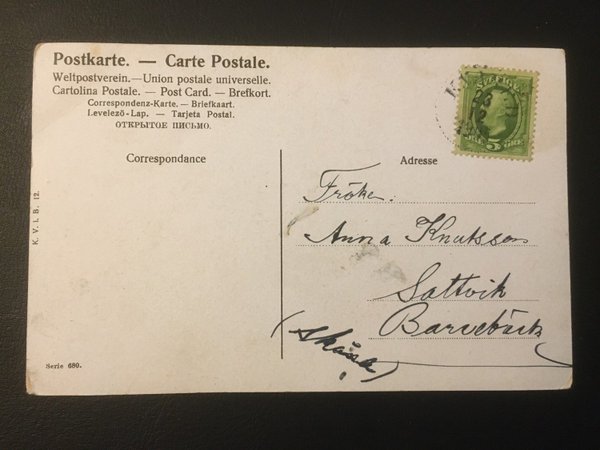 Postkarte. — Carte Postale.
Weltpostverein. — Union postale universelle.
Cartolina Postale. — Post Card. — Brefkort.
Correspondenz-Karte. — Briefkaart.
Levelező-Lap. — Tarjeta Postal.
ОТКРЫТОЕ ПИСЬМО.
Correspondance
Adresse
SVERIGE
5
ÖRE
Fröken:
Anna Knutsson
Saltvik
Barsebäck
(Skåne)
K. V. i. B. 12.
Serie 680.